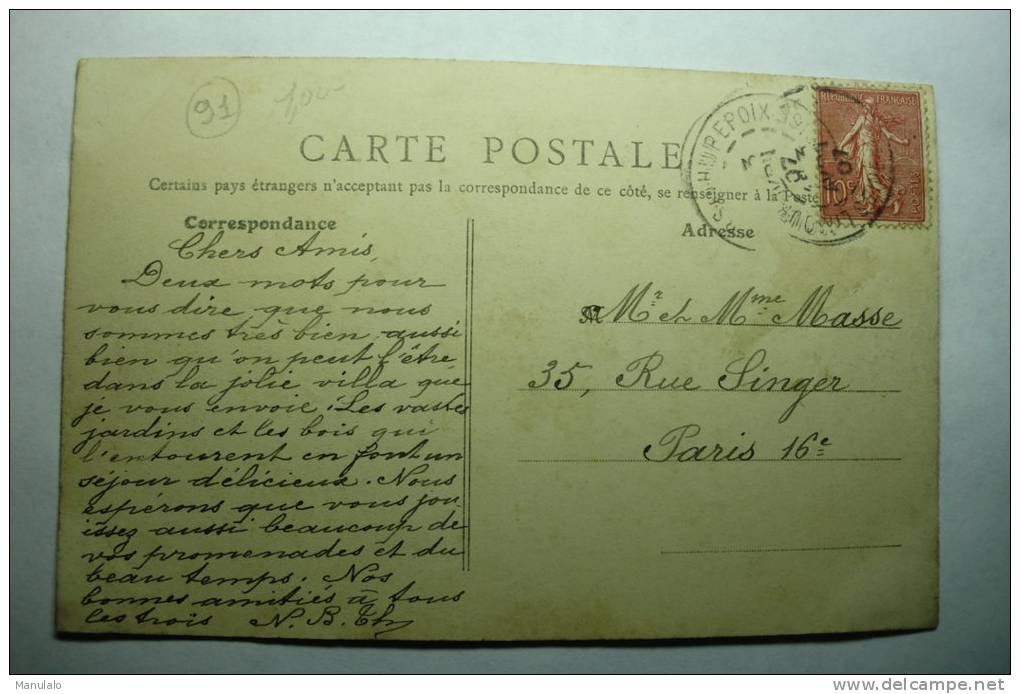 91
CARTE POSTALE
Certains pays étrangers n'acceptant pas la correspondance de ce côté, se renseigner à la Poste
RÉPUBLIQUE FRANÇAISE
10
Correspondance
Adresse
Chers Amis,
Deux mots pour
vous dire que nous
sommes très bien aussi
bien qu'on peut l'être
dans la jolie villa que
je vous envoie. Les vastes
jardins et les bois qui
l'entourent en font un
séjour délicieux. Nous
espérons que vous jou-
issez aussi beaucoup de
vos promenades et du
beau temps. Nos
bonnes amitiés à tous
les trois N. B.
Mr et Mme Masse
35, Rue Singer
Paris 16e
Manulalo
delcampe.net